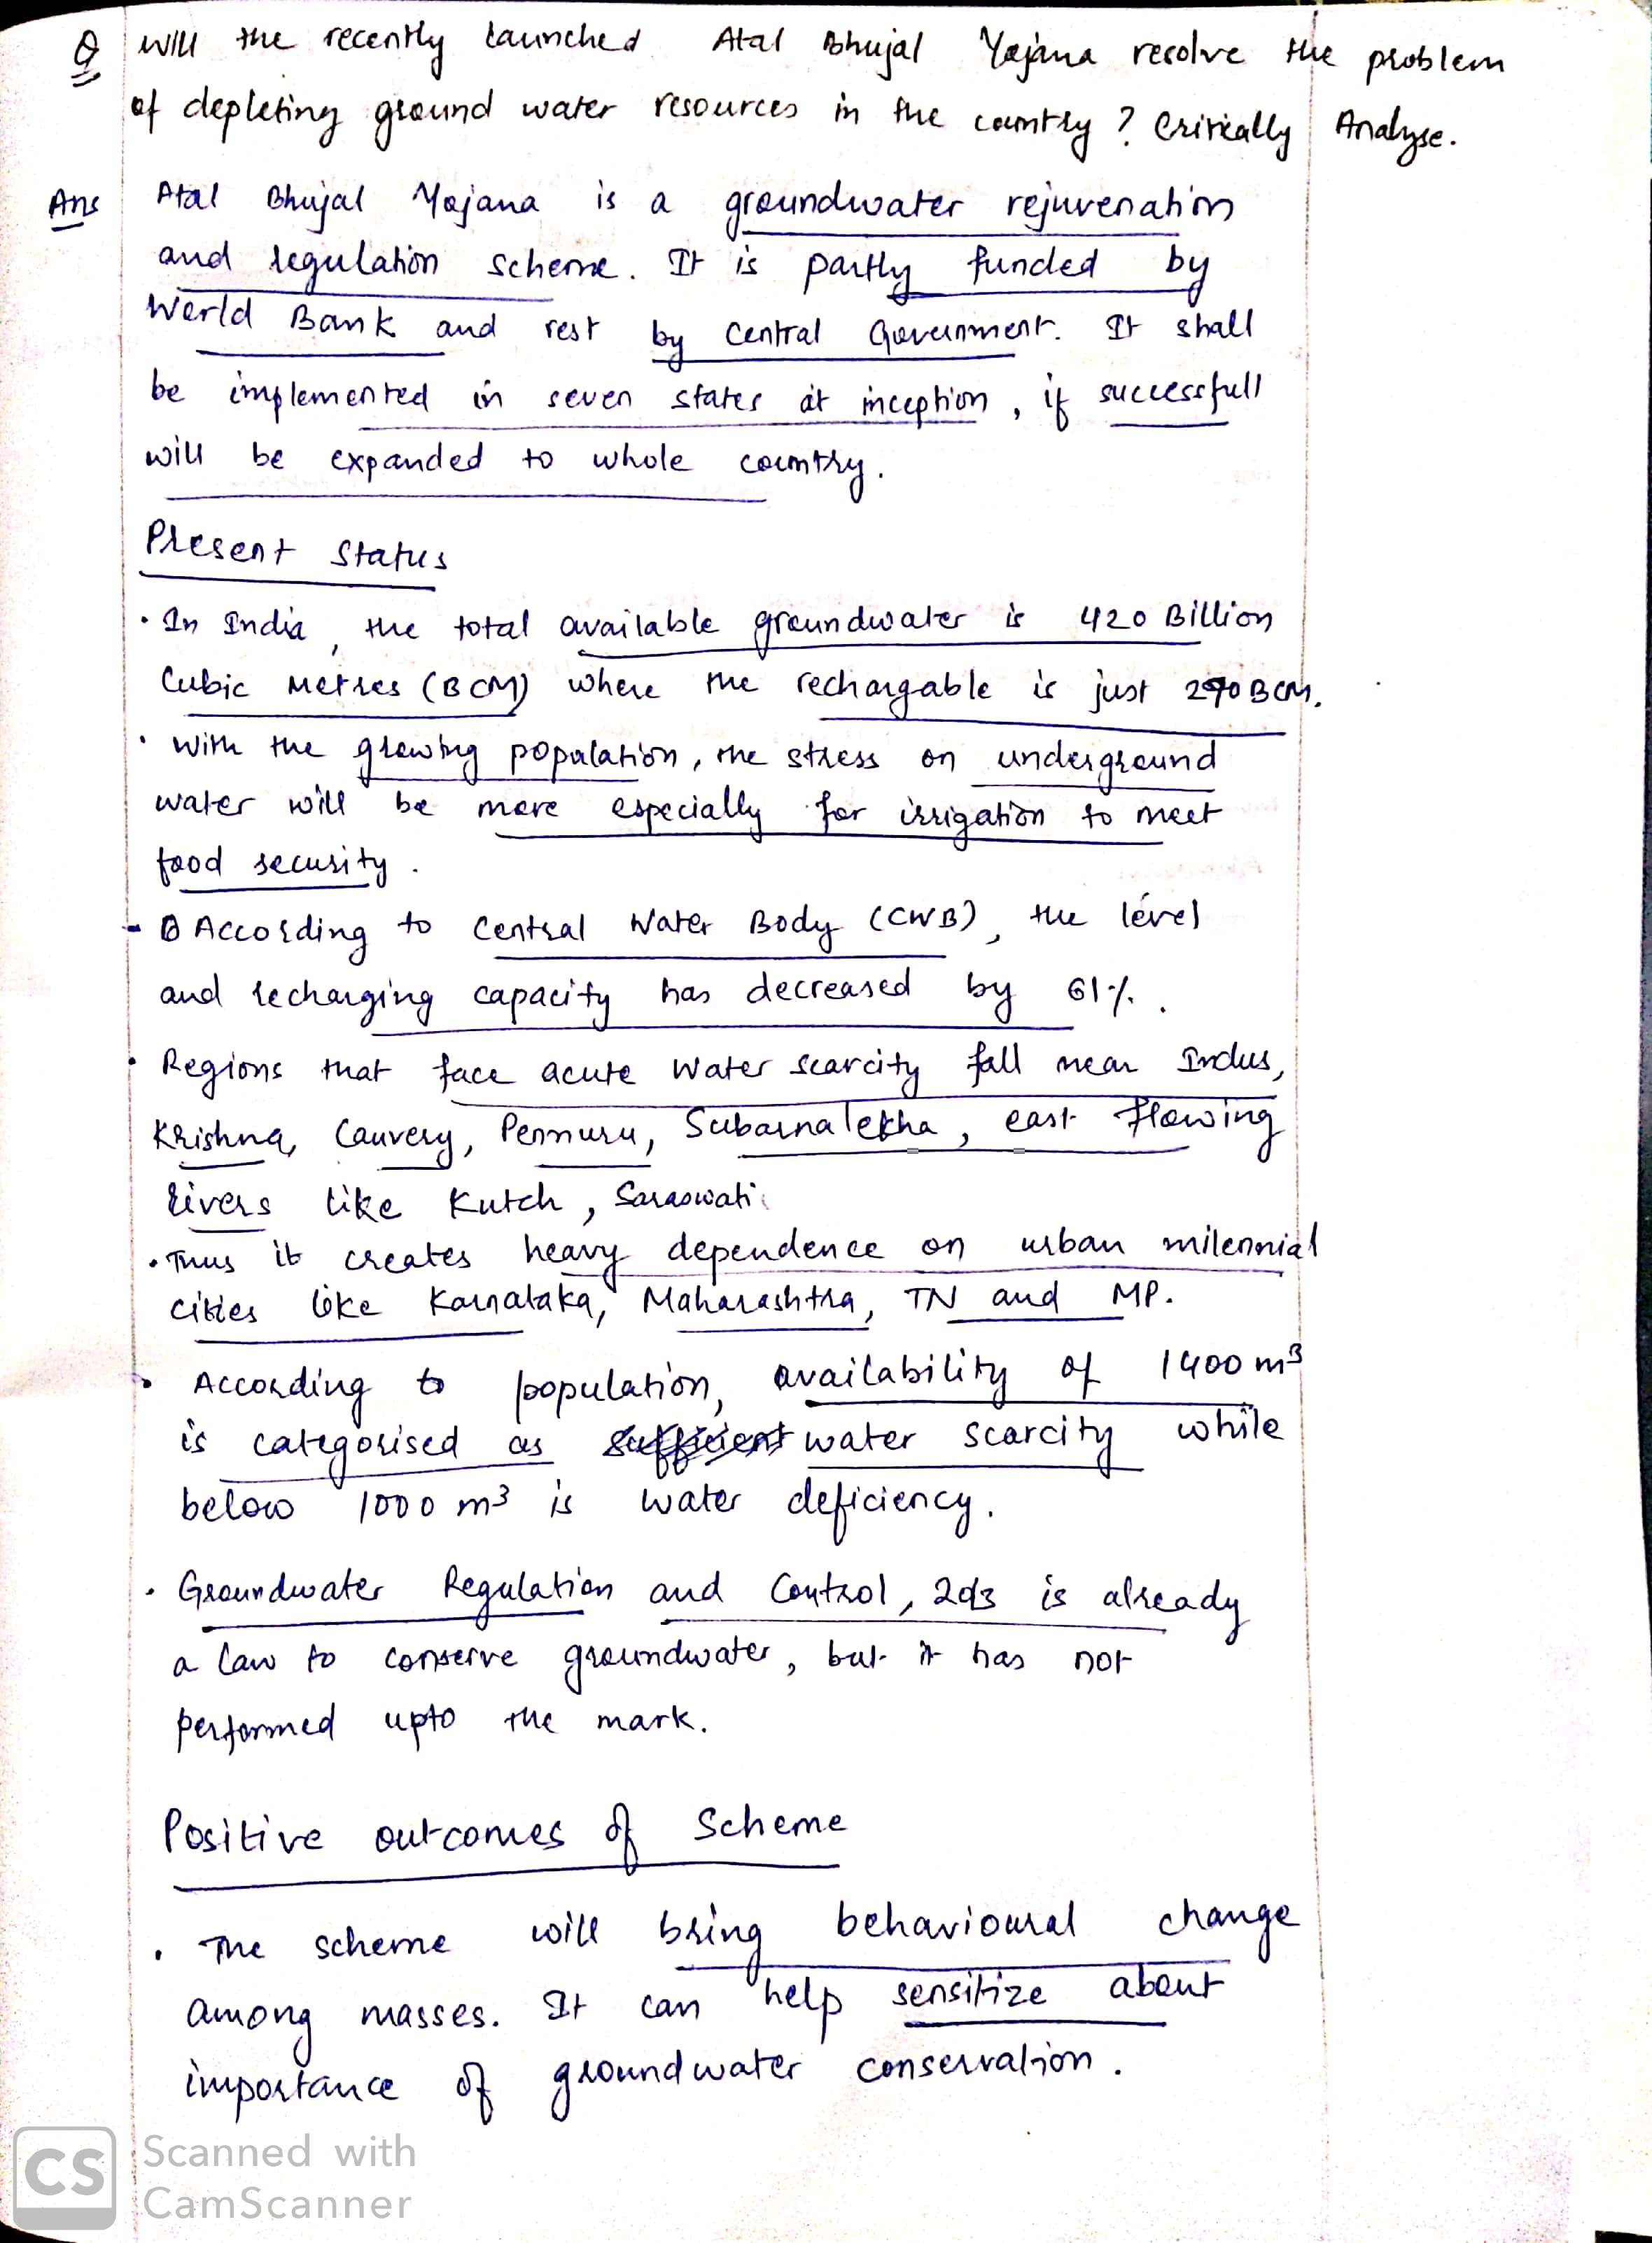 Q Will the recently launched Atal Bhujal Yojana resolve the problem
of depleting ground water resources in the country? Critically Analyse.
Ans Atal Bhujal Yojana is a groundwater rejuvenation
and regulation scheme. It is partly funded by
World Bank and rest by Central Government. It shall
be implemented in seven states at inception, if successfull
will be expanded to whole country.
Present Status
• In India, the total available groundwater is 420 Billion
Cubic Metres (BCM) where the rechargable is just 290 BCM.
• With the growing population, the stress on underground
water will be more especially for irrigation to meet
food security.
• According to Central Water Body (CWB), the level
and recharging capacity has decreased by 61%.
• Regions that face acute water scarcity fall near Indus,
Krishna, Cauvery, Pennuru, Subarnalekha, east flowing
rivers like Kutch, Saraswati.
• Thus it creates heavy dependence on urban milennial
cities like Karnataka, Maharashtra, TN and MP.
• According to population, availability of 1400 m³
is categorised as sufficient water scarcity while
below 1000 m³ is water deficiency.
• Groundwater Regulation and Control, 2013 is already
a law to conserve groundwater, but it has not
performed upto the mark.
Positive outcomes of Scheme
• The scheme will bring behavioural change
among masses. It can help sensitize about
importance of groundwater conservation.
CS Scanned with
CamScanner